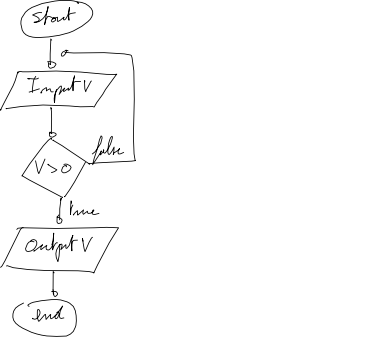 Start
Input V
V > 0
false
true
Output V
end